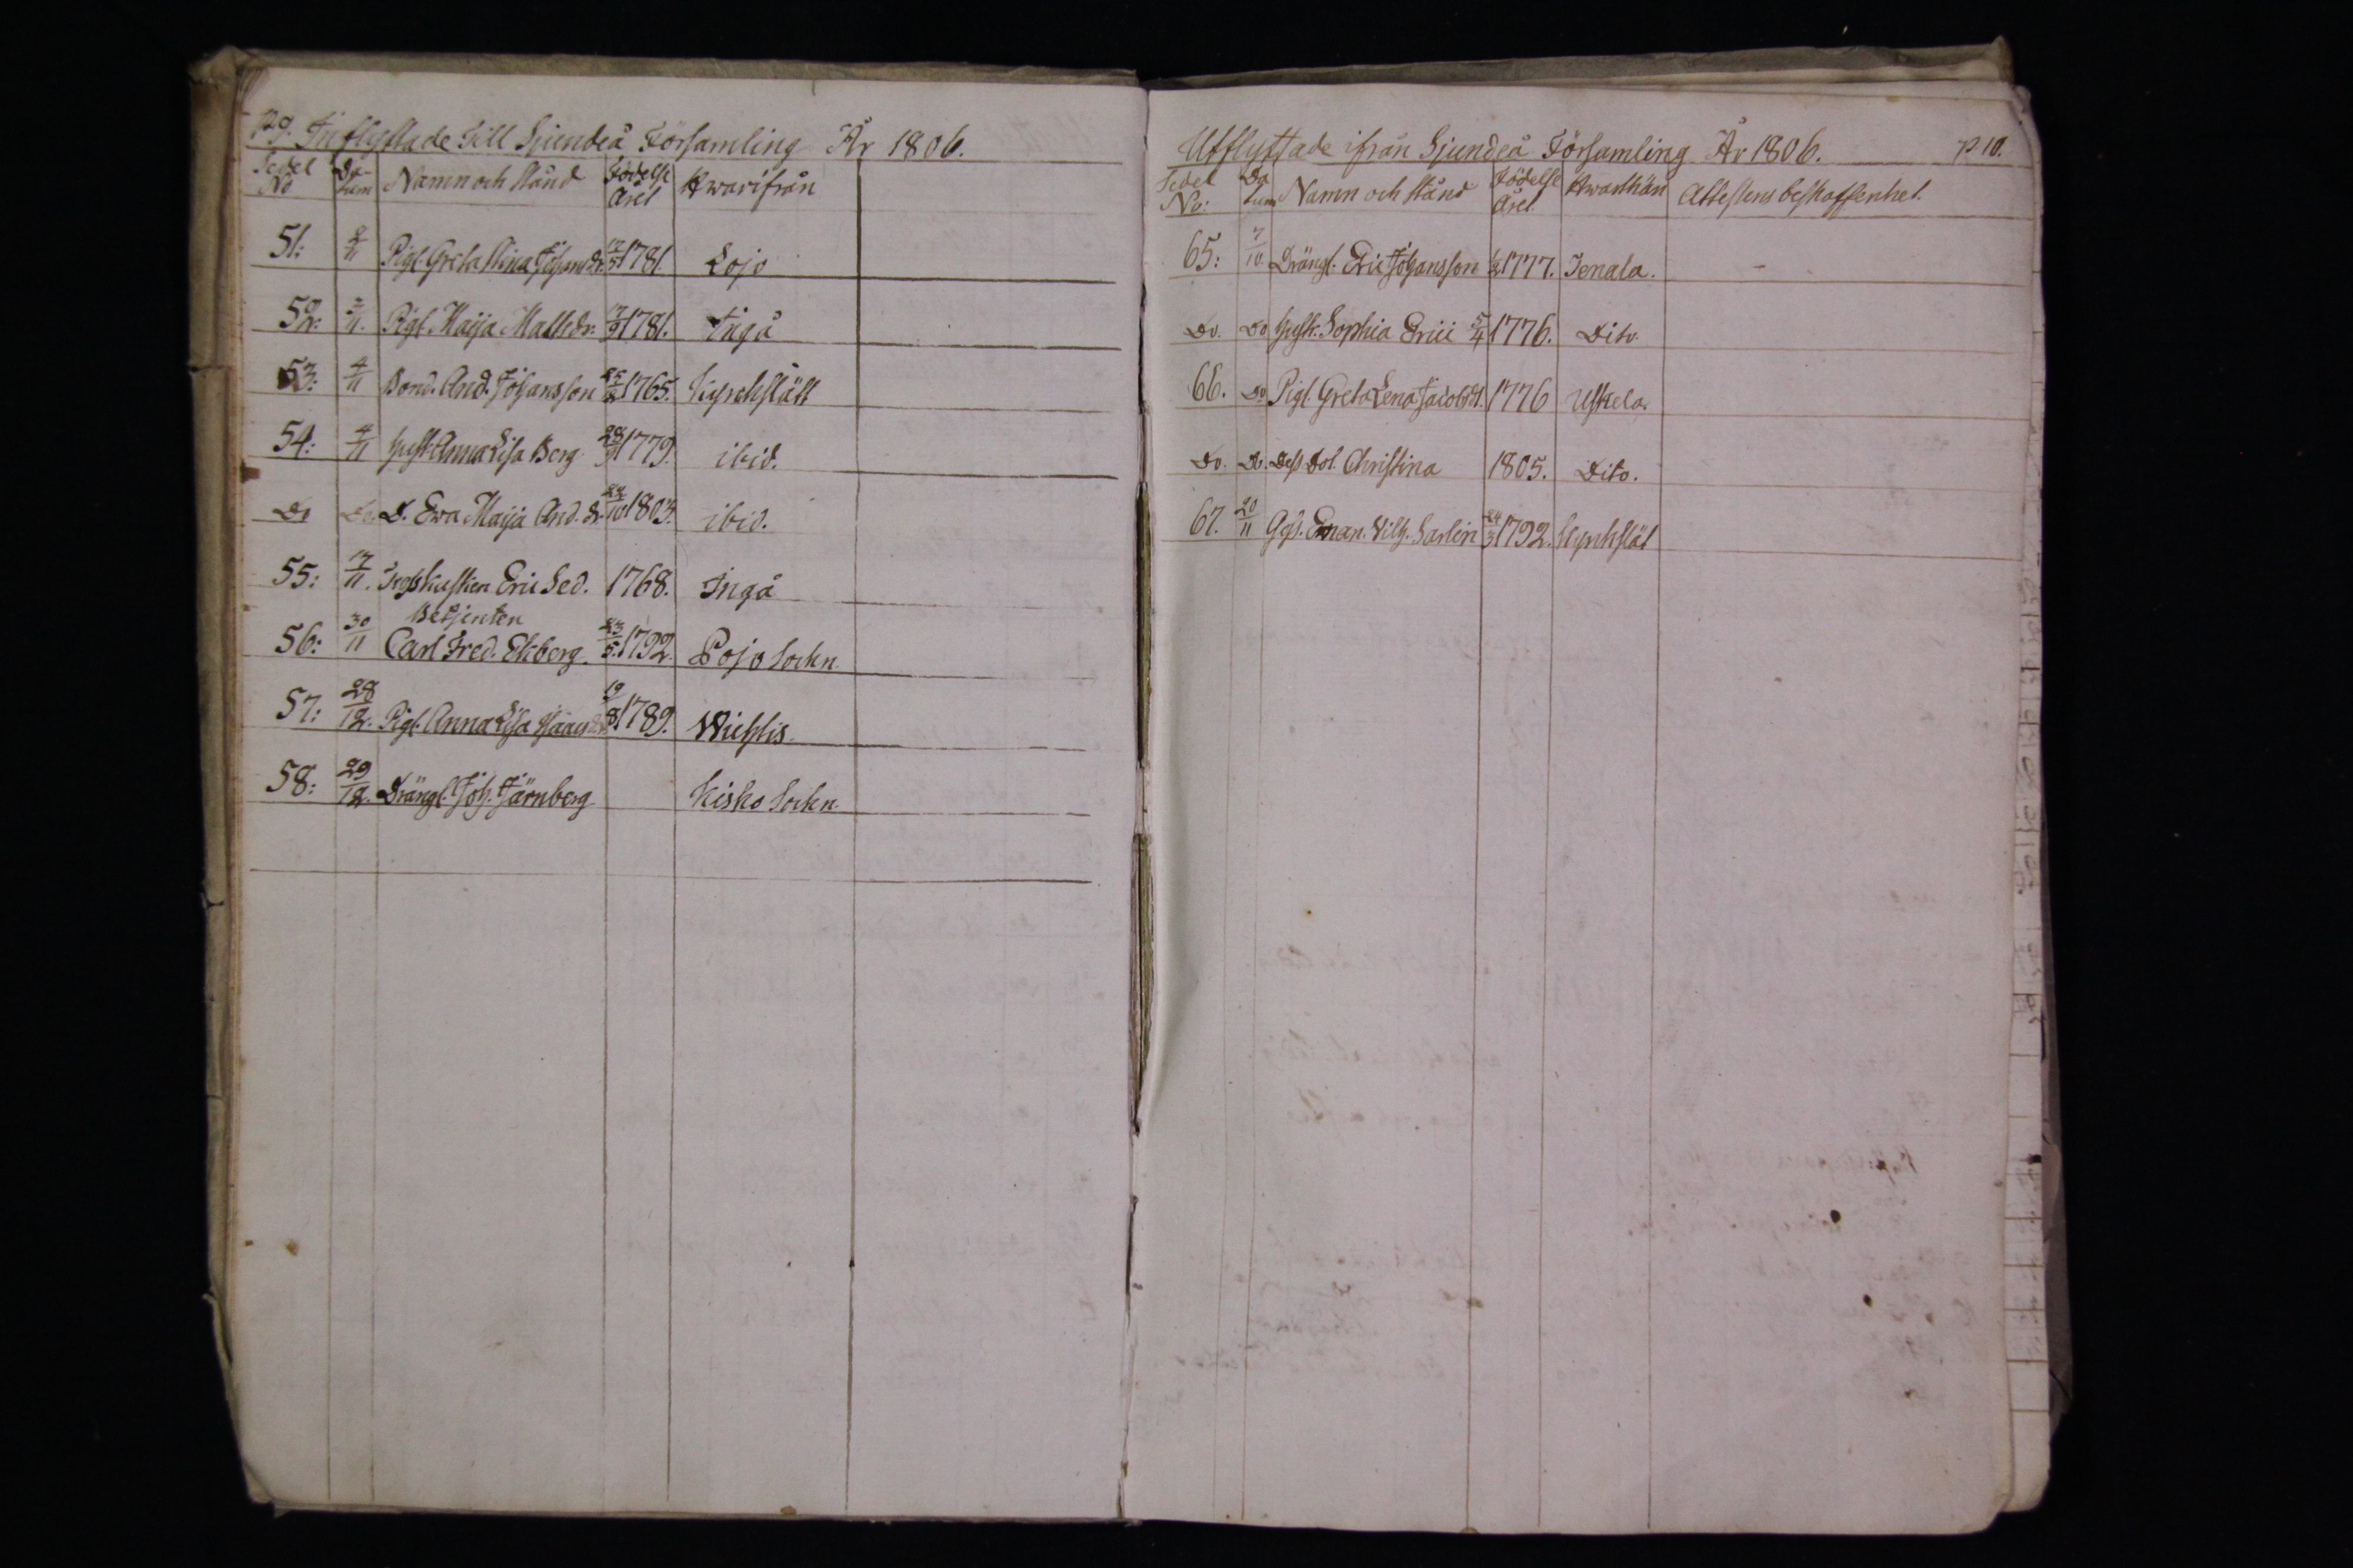 p 9. Inflyttade Till Sjundeå Församling År 1806.
Sedel No Datum Namn och stånd Födelse Året Hwarifrån
51: 2/11 Pig. Greta Stina Johansdr. 17/5 1781. Lojo
52: 3/11. Pig. Maija Mattsdr. 17/9 1781. Ingå
53: 4/11 Bond. And. Johansson 25/2 1765. Kyrckslätt
54: 4/11 Hust. Anna Lisa Berg 28/9 1779. ibid.
Do Do D. Ewa Maija And. dr. 22/10 1803. ibid.
55: 17/11. Eric Sed. 1768. Ingå
Betjenten
56: 30/11 Carl Fred. Ekberg. 23/5. 1792. Pojo Sockn.
57: 28/12. Pig. Anna Lisa 19/8. 1789. Wichtis.
58: 29/12. Drängl. Joh. Järnberg Kisko Sockn.
Utflyttade ifrån Sjundeå Församling År 1806. p 10.
Sedel No: Datum Namn och stånd Födelse Året. Hwarthän Attestens beskaffenhet.
65: 7/10. Drängl. Eric Johansson 1777. Tenala. -
Do. Do Hust. Sophia Erici 5/4 1776. Dito.
66. Do Pigl. Greta Lena Jacobsd. 1776 Uskela.
Do. Do. Dess Dot. Christina 1805. Dito.
67. 20/11 Ges. Eman. Vilh. Sarlin 24/3 1792. Kyrkslät